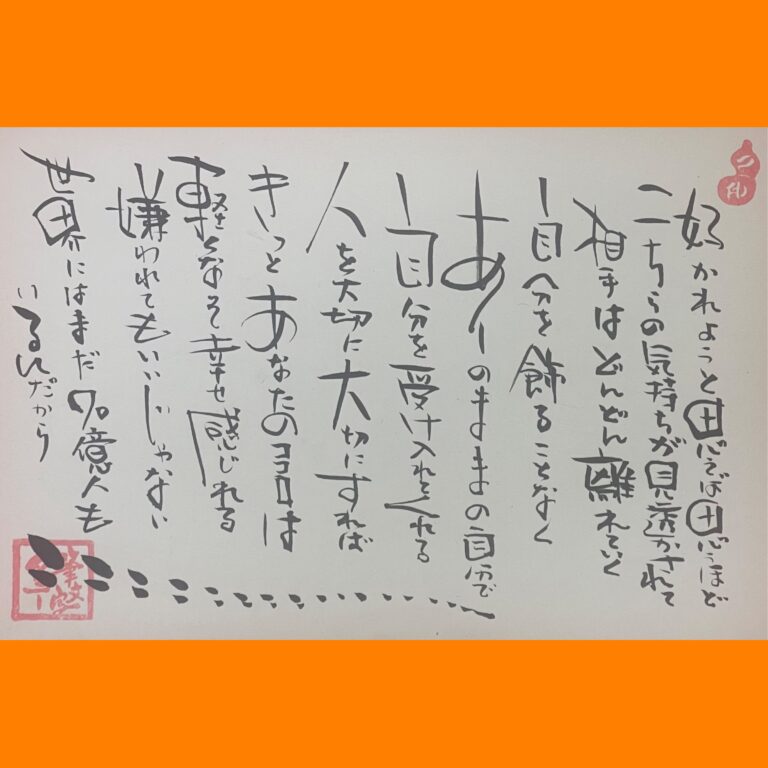 好かれようと思えば思うほど
こちらの気持ちが見透かされて
相手はどんどん離れていく
自分を飾ることなく
ありのままの自分で
自分を受け入れてくれる
人を大切に大切にすれば
きっとあなたのココロは
軽くなって幸せ感じれる
嫌われてもいいじゃない
世界にはまだ70億人も
いるんだから